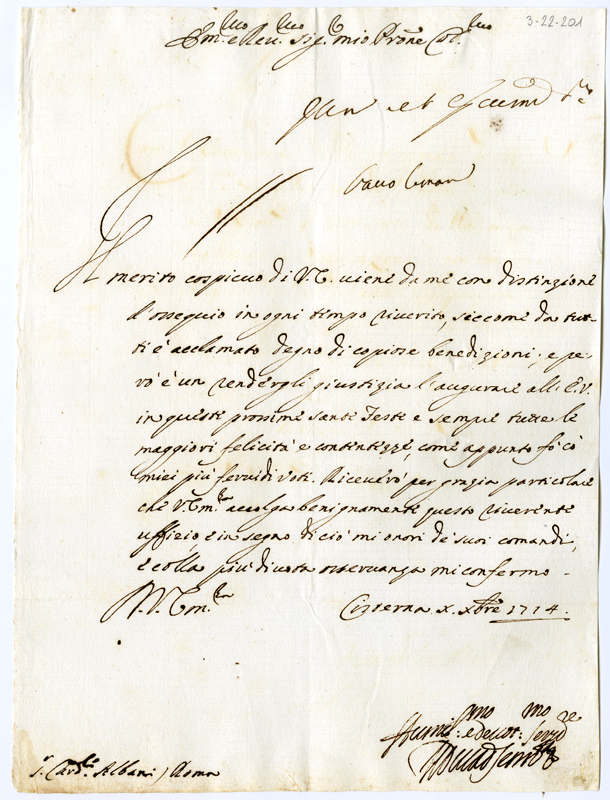 3-22-201
Em.mo e Reu.mo Sig.r mio Prõne Col.mo
Il merito cospicuo di V.E. uiene da me con distinzione
d'ossequio in ogni tempo riuerito, siccome da tut-
ti è acclamato degno di copiose benedizioni; e pe-
rò è un rendergli giustizia l'augurare all'E.V.
in questi prossime Sante Feste e sempre tutte le
maggiori felicità e contentezze, come appunto fò co'
miei più feruidi voti. Riceuerò per grazia particolare
che V. Em.za accolga benignamente questo riuerente
uffizio, e in segno di ciò mi onori de' suoi comandi,
e colla più diuota osseruanza mi confermo.
D. V. Em.za Cisterna x. xbre 1714.
Hum.mo e deuot.mo ser.re
S. Card.le Albani / Roma